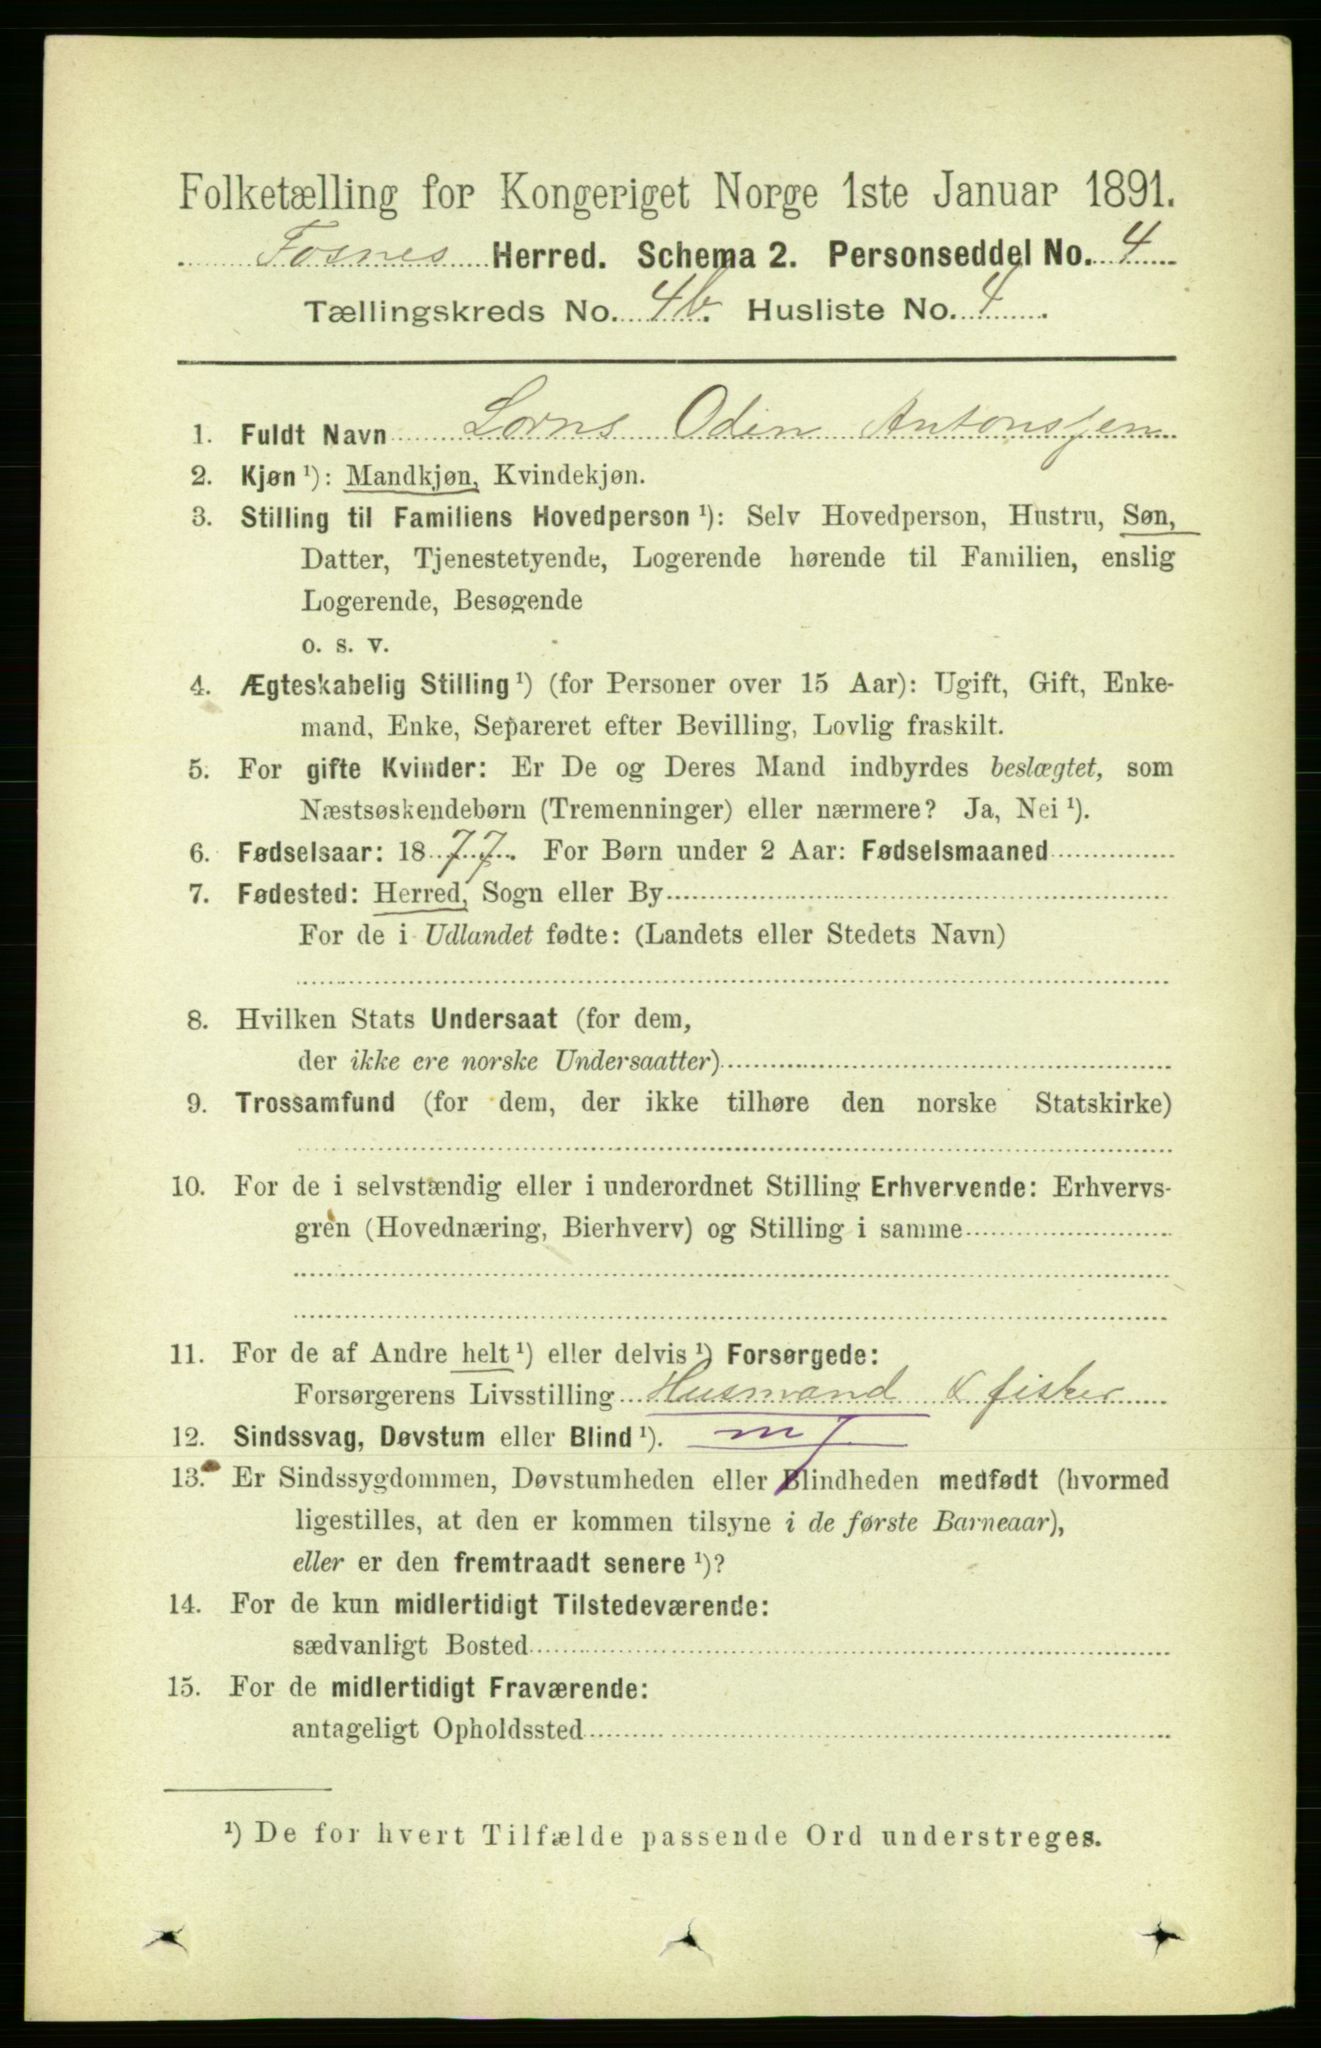 Folketælling for Kongeriget Norge 1ste Januar 1891.
Fosnes Herred. Schema 2. Personseddel No. 4
Tællingskreds No. 4b. Husliste No. 4.
1. Fuldt Navn Lorns Odin Antonsen
2. Kjøn ¹): Mandkjøn, Kvindekjøn.
3. Stilling til Familiens Hovedperson ¹): Selv Hovedperson, Hustru, Søn,
Datter, Tjenestetyende, Logerende hørende til Familien, enslig
Logerende, Besøgende
o. s. v.
4. Ægteskabelig Stilling ¹) (for Personer over 15 Aar): Ugift, Gift, Enke-
mand, Enke, Separeret efter Bevilling, Lovlig fraskilt.
5. For gifte Kvinder: Er De og Deres Mand indbyrdes beslægtet, som
Næstsøskendebørn (Tremenninger) eller nærmere? Ja, Nei ¹).
6. Fødselsaar: 1877. For Børn under 2 Aar: Fødselsmaaned
7. Fødested: Herred, Sogn eller By
For de i Udlandet fødte: (Landets eller Stedets Navn)
8. Hvilken Stats Undersaat (for dem,
der ikke ere norske Undersaatter)
9. Trossamfund (for dem, der ikke tilhøre den norske Statskirke)
10. For de i selvstændig eller i underordnet Stilling Erhvervende: Erhvervs-
gren (Hovednæring, Bierhverv) og Stilling i samme
11. For de af Andre helt ¹) eller delvis ¹) Forsørgede:
Forsørgerens Livsstilling Husmand & fisker
12. Sindssvag, Døvstum eller Blind ¹).
13. Er Sindssygdommen, Døvstumheden eller Blindheden medfødt (hvormed
ligestilles, at den er kommen tilsyne i de første Barneaar),
eller er den fremtraadt senere ¹)?
14. For de kun midlertidigt Tilstedeværende:
sædvanligt Bosted
15. For de midlertidigt Fraværende:
antageligt Opholdssted
¹) De for hvert Tilfælde passende Ord understreges.